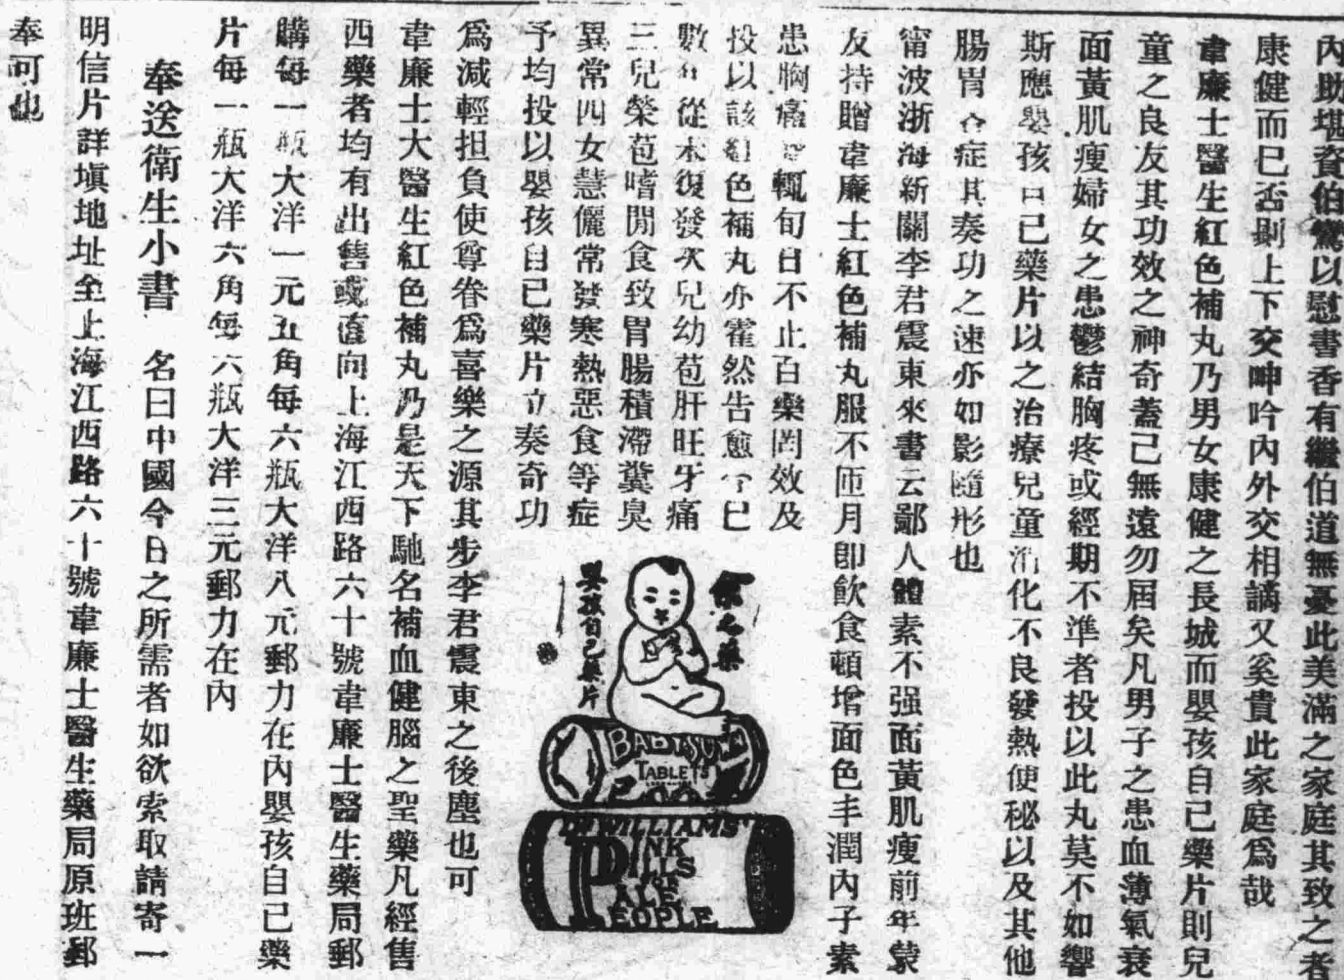 內助堪資伯鸞以慰書香有繼伯道無憂此美滿之家庭其致之者
康健而已否則上下交呻吟內外交相謫又奚貴此家庭爲哉
韋廉士醫生紅色補丸乃男女康健之長城而嬰孩自己藥片則兒
童之良友其功效之神奇蓋已無遠勿屆矣凡男子之患血薄氣衰
面黃肌瘦婦女之患鬱結胸疼或經期不準者投以此丸莫不如響
斯應嬰孩自己藥片以之治療兒童消化不良發熱便秘以及其他
腸胃各症其奏功之速亦如影隨形也
甯波浙海新關李君震東來書云鄙人體素不强面黃肌瘦前年蒙
友持贈韋廉士紅色補丸服不匝月卽飲食頓增面色丰潤內子素
患胸痛輒旬日不止百藥罔效及
投以該紅色補丸亦霍然告愈今已
數年從未復發次兒幼苞肝旺牙痛
三兒榮苞嗜閒食致胃腸積滯糞臭
異常四女慧儷常發寒熱惡食等症
予均投以嬰孩自已藥片立奏奇功
爲減輕担負使尊眷爲喜樂之源其步李君震東之後塵也可
韋廉士大醫生紅色補丸乃是天下馳名補血健腦之聖藥凡經售
西藥者均有出售或直向上海江西路六十號韋廉士醫生藥局郵
購每一瓶大洋一元五角每六瓶大洋八元郵力在內嬰孩自己藥
片每一瓶大洋六角每六瓶大洋三元郵力在內
奉送衛生小書 名曰中國今日之所需者如欲索取請寄一
明信片詳塡地址至上海江西路六十號韋廉士醫生藥局原班郵
奉可也
之藥
嬰孩自己藥片
BABY'S OWN
TABLETS
DR WILLIAMS'
PINK
PILLS
FOR
PALE
PEOPLE